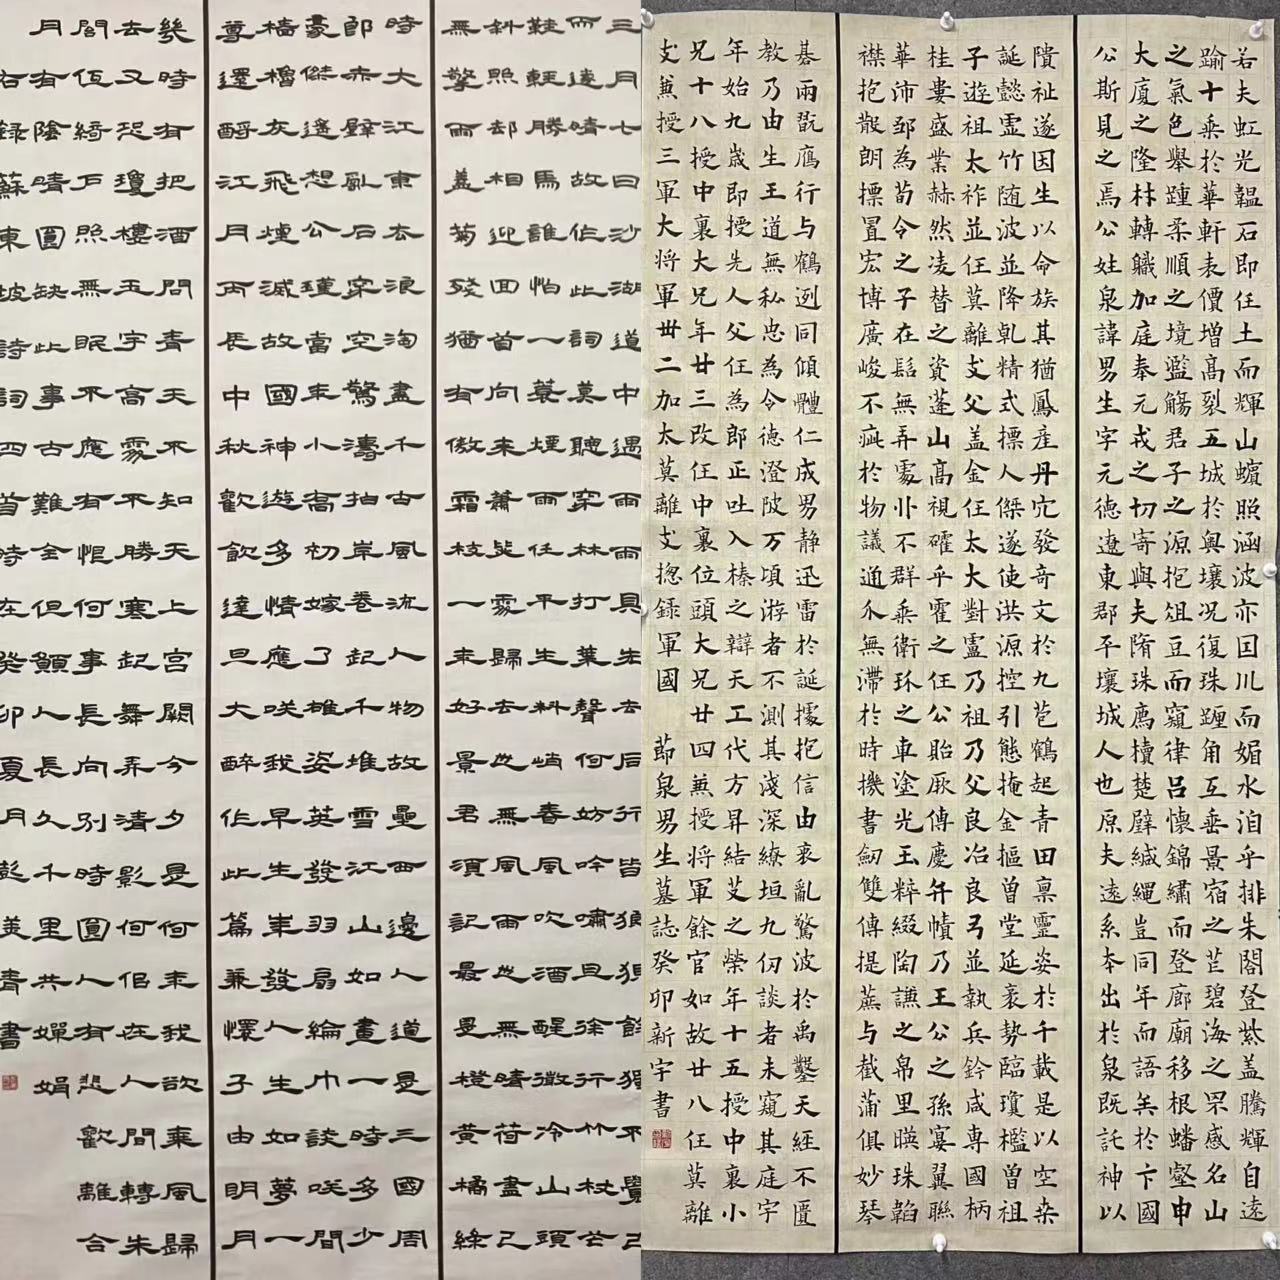 三月七日沙湖道中遇雨雨具先去同行皆狼狽餘獨不覺已
而遂晴故作此詞莫聽穿林打葉聲何妨吟嘯且徐行竹杖芒
鞋輕勝馬誰怕一蓑煙雨任平生料峭春風吹酒醒微冷山頭
斜照却相迎回首向來蕭瑟處歸去也無風雨也無晴荷盡已
無擎雨蓋菊殘猶有傲霜枝一年好景君須記最是橙黃橘綠
時大江東去浪淘盡千古風流人物故壘西邊人道是三國周
郎赤壁亂石穿空驚濤拍岸卷起千堆雪江山如畫一時多少
豪傑遙想公瑾當年小喬初嫁了雄姿英發羽扇綸巾談咲間
檣櫓灰飛煙滅故國神遊多情應咲我早生華發人生如夢一
尊還酹江月丙辰中秋歡飲達旦大醉作此篇兼懷子由明月
幾時有把酒問青天不知天上宮闕今夕是何年我欲乘風歸
去又恐瓊樓玉宇高處不勝寒起舞弄清影何佀在人間轉朱
閣低綺戶照無眠不應有恨何事長向別時圓人有悲歡離合
月有陰晴圓缺此事古難全但願人長久千里共嬋娟
右錄蘇東坡詩詞四首時在癸卯夏月彭美青書
若夫虹光韞石即任土而輝山蠙照涵波亦因川而媚水洎乎排朱閣登紫盖騰輝自遠
踰十乘於華軒表價增高裂五城於奧壤况復珠躔角互垂景宿之芒碧海之罘感名山
之氣色舉踵柔順之境濫觴君子之源抱俎豆而窺律呂懷錦繡而登廊廟移根蟠壑申
大廈之隆材轉職加庭奉元戎之切寄與夫隋珠薦櫝楚璧緘繩豈同年而語矣於卞國
公斯見之焉公姓泉諱男生字元德遼東郡平壤城人也原夫遠系本出於泉既託神以
隤祉遂因生以命族其猶鳳產丹穴發奇文於九苞鶴起青田稟靈姿於千載是以空桒
誕懿靈竹随波並降乹精式摽人傑遂使洪源控引態掩金樞曾堂延袤勢臨瓊檻曾祖
子遊祖太祚並任莫離支父盖金任太大對盧乃祖乃父良冶良弓並執兵鈐咸專國柄
桂婁盛業赫然凌替之資蓬山高視確乎霍之任公貽厥傳慶弁幘乃王公之孫宴翼聯
華沛鄒為荀令之子在髫無弄處丱不群乘衛玠之車塗光玉粹綴陶謙之帛里暎珠韜
襟抱散朗摽置宏博廣峻不疵於物議通介無滯於時機書劒雙傳提蔗与截蒲俱妙琴
碁兩翫鴈行与鶴迾同傾體仁成男静迅雷於誕據抱信由衷亂驚波於禹鑿天經不匱
教乃由生王道無私忠為令德澄陂万頃游者不測其淺深繚垣九仞談者未窺其庭宇
年始九歲即授先人父任為郎正吐入榛之辯天工代方昇結艾之榮年十五授中裏小
兄十八授中裏大兄年廿三改任中裏位頭大兄廿四兼授將軍餘官如故廿八任莫離
支兼授三軍大將軍卅二加太莫離支揔録軍國 節泉男生墓誌癸卯新宇書